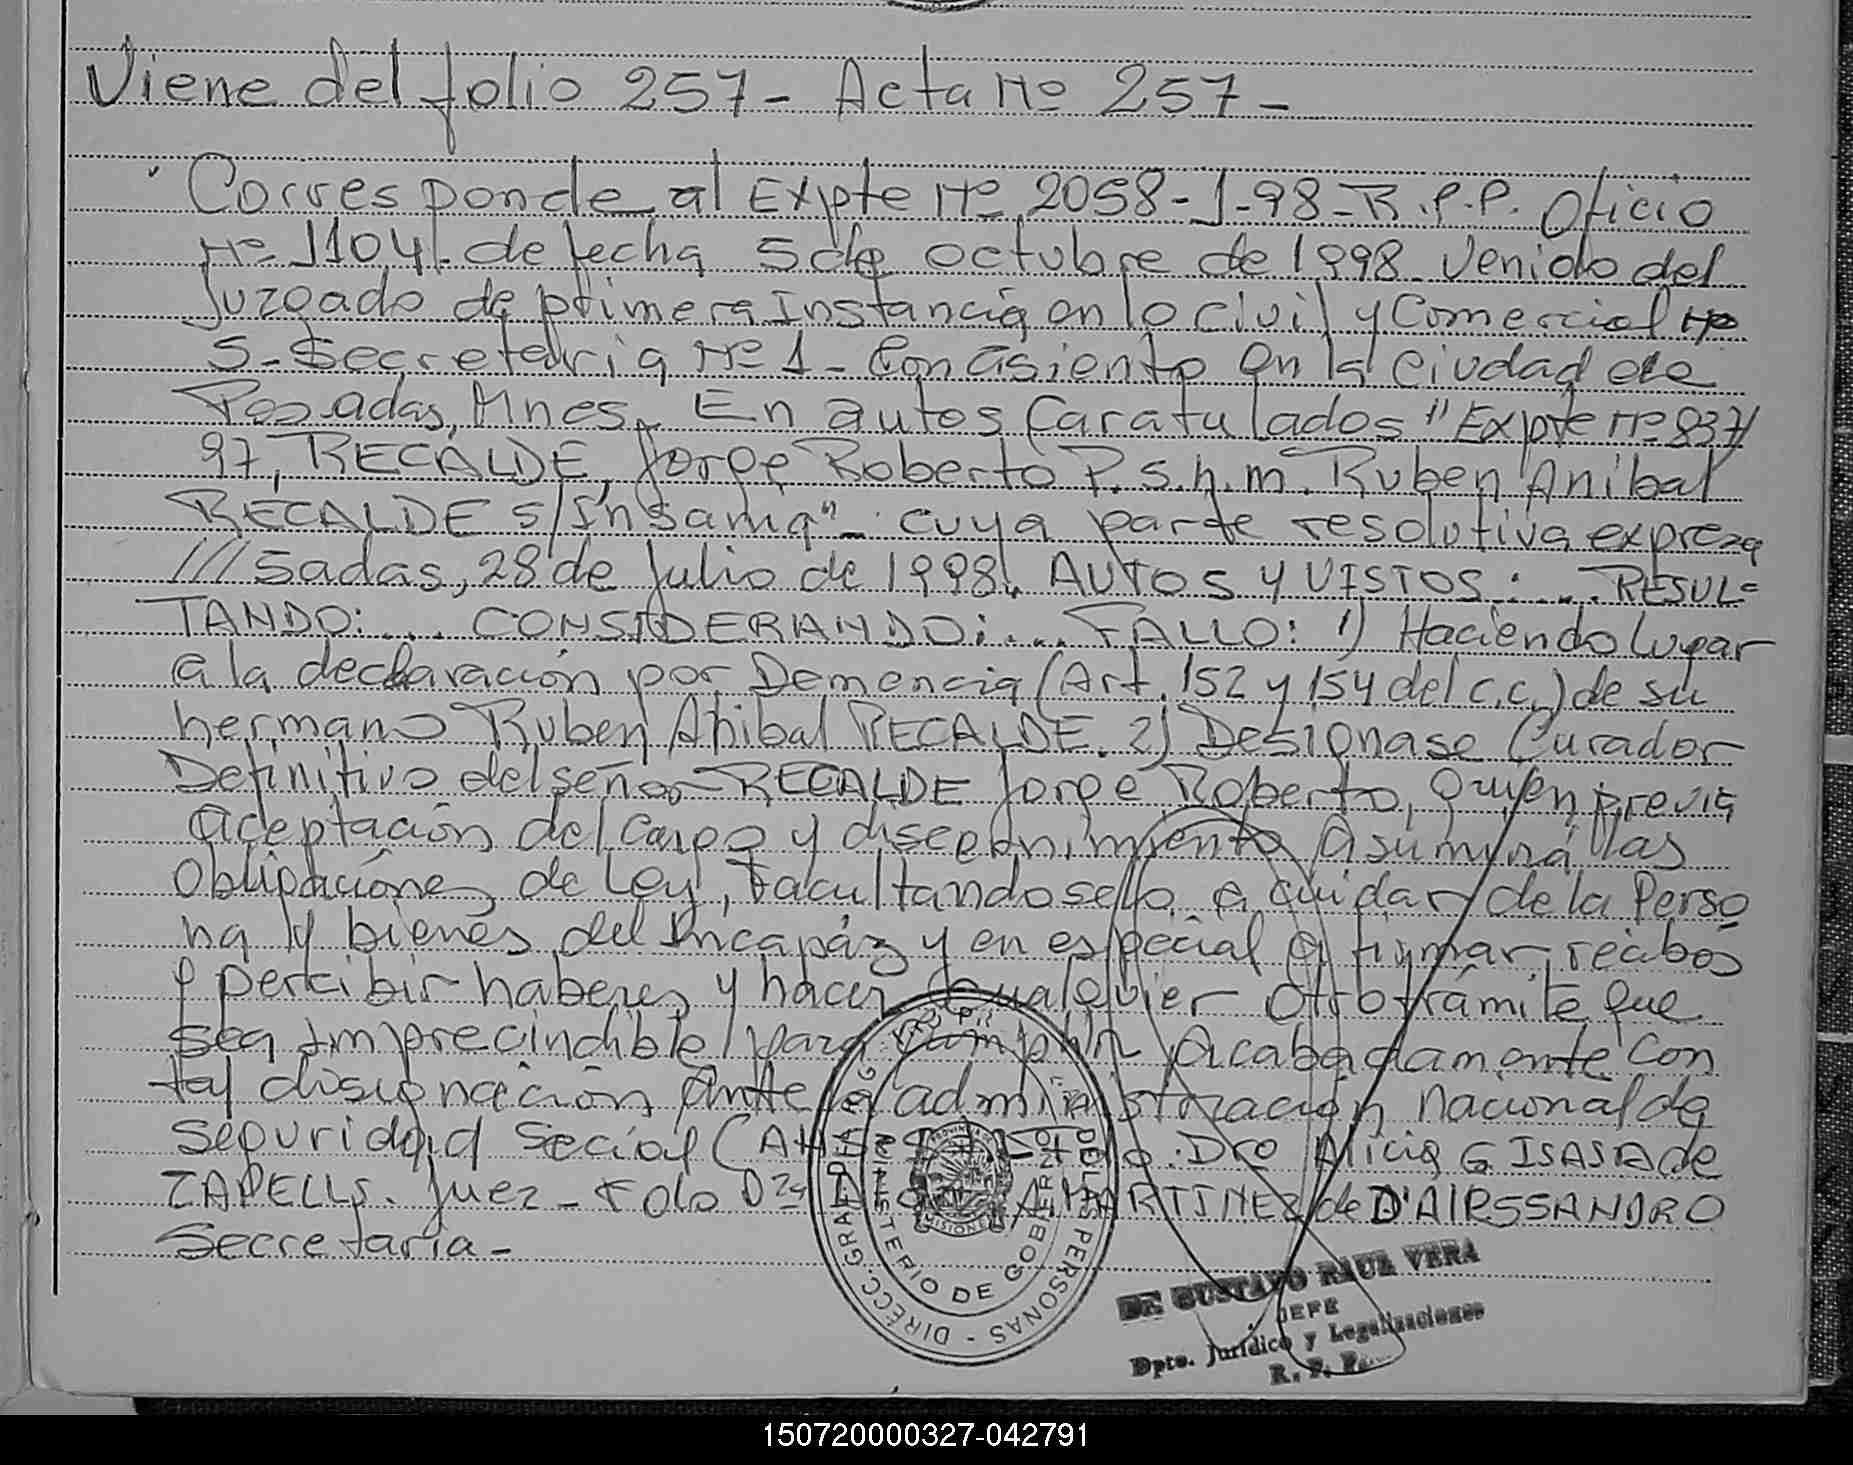 Viene del folio 257- Acta Nº 257-
Corresponde al Expte Nº 2058-J-98-R.P.P. Oficio
Nº 1104. de fecha 5 de octubre de 1998. Venido del
Juzgado de primera Instancia en lo Civil y Comercial Nº
5- Secretaria Nº 1- Con asiento en la Ciudad de
Posadas, Mnes. En autos Caratulados "Expte Nº 837/
97, RECALDE, Jorge Roberto P.s.h.m. Ruben Anibal
RECALDE s/Insania"- cuya parte resolutiva expresa
///sadas, 28 de Julio de 1998. AUTOS Y VISTOS:.... RESUL=
TANDO:.... CONSIDERANDO:.... FALLO: 1) Haciendo lugar
a la declaración por Demencia (Art. 152 y 154 del C.C.) de su
hermano Ruben Anibal RECALDE. 2) Designase Curador
Definitivo del señor RECALDE Jorge Roberto, quien previa
aceptación del cargo y discernimiento asumirá las
obligaciones de Ley, Facultandosello a cuidar de la Perso
na y bienes del Incapáz y en especial a firmar recibos
y percibir haberes y hacer Cualquier Otro trámite que
sea imprecindible para cumplir acabadamente con
tal disignación ante la administración nacional de
Seguridad Social Dra Alicia G ISASA de
ZAPELLI. Juez- Fdo Dra MARTINEZ de D'AIRSSANDRO
Secretaria-
PROVINCIA DE
MISIONES
MINISTERIO DE GOBIERNO
DIRECC. GRAL. DEL REGISTRO PROV. DE LAS PERSONAS
DR GUSTAVO RAUL VERA
JEFE
Dpto. Jurídico y Legalizaciones
R. P. P.
150720000327-042791